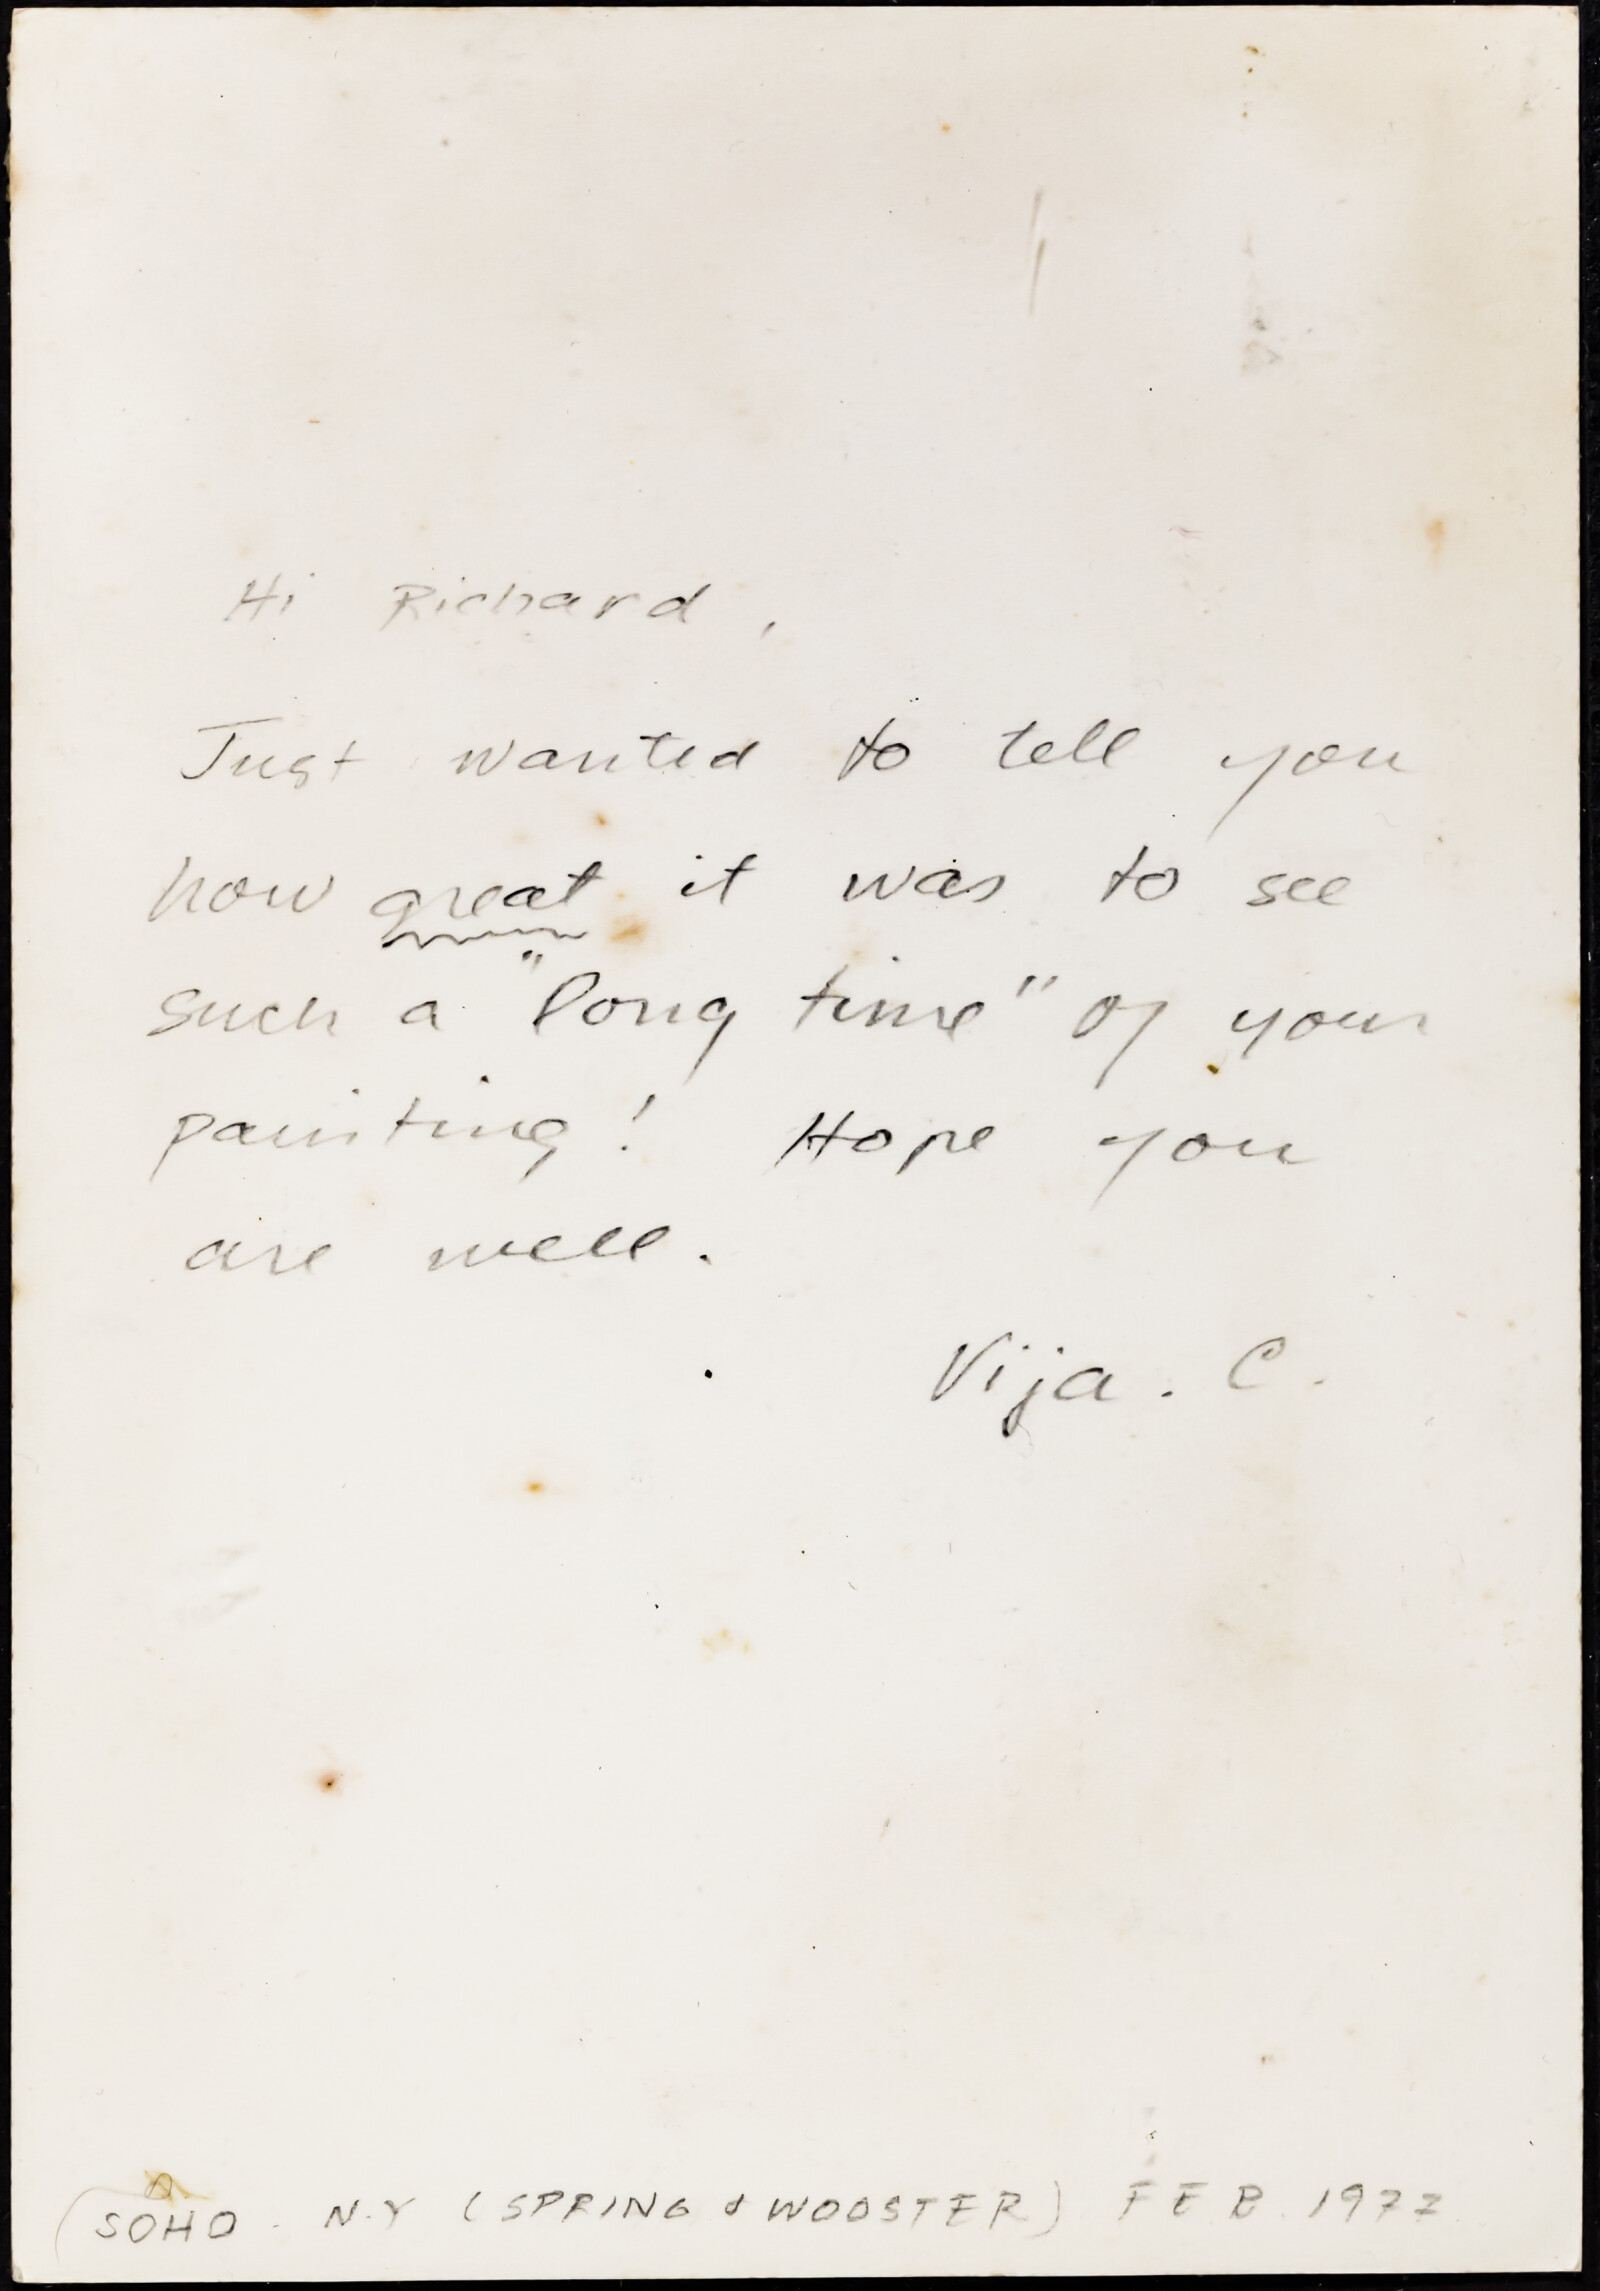 Hi Richard,
Just wanted to tell you
how great it was to see
such a "long time" of your
painting! Hope you
are well.
Vija. C.
(SOHO. N.Y (SPRING & WOOSTER) FEB. 1977